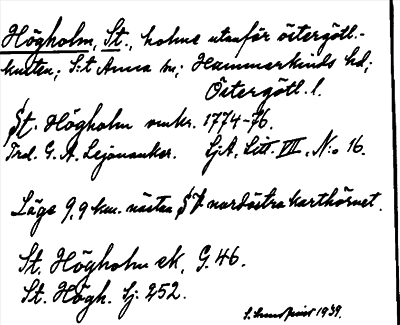 Högholm, St., holme utanför östergötl.-
kusten; S:t Anna sn; Hammarkinds hd;
Östergötl. l.
St. Högholm omkr. 1774-76.
Trol. G. A. Lejonanker. SjA, Litt. VII, N:o 16.
Läge 9,9 km. nästan S7 nordöstra karthörnet.
St. Högholm ek. G. 46.
St. Högh. Sj: 252.
1939.